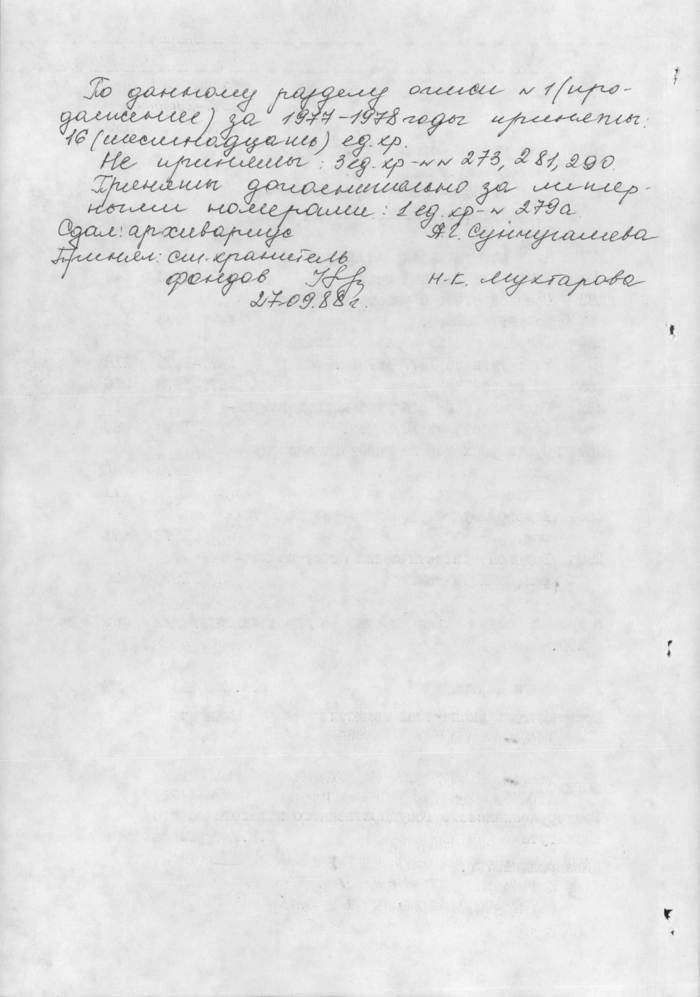 По данному разделу описи №1 (про-
должение) за 1977-1978 годы приняты:
16 (шестнадцать) ед.хр.
Не приняты: 3 ед.хр - №№ 273, 281, 290.
Приняты дополнительно за литер-
ными номерами: 1 ед.хр - № 279а.
Сдал: архивариус А.С. Сунчугалиева
Принял: ст. хранитель
фондов Н.К. Мухтарова
27.09.88 г.